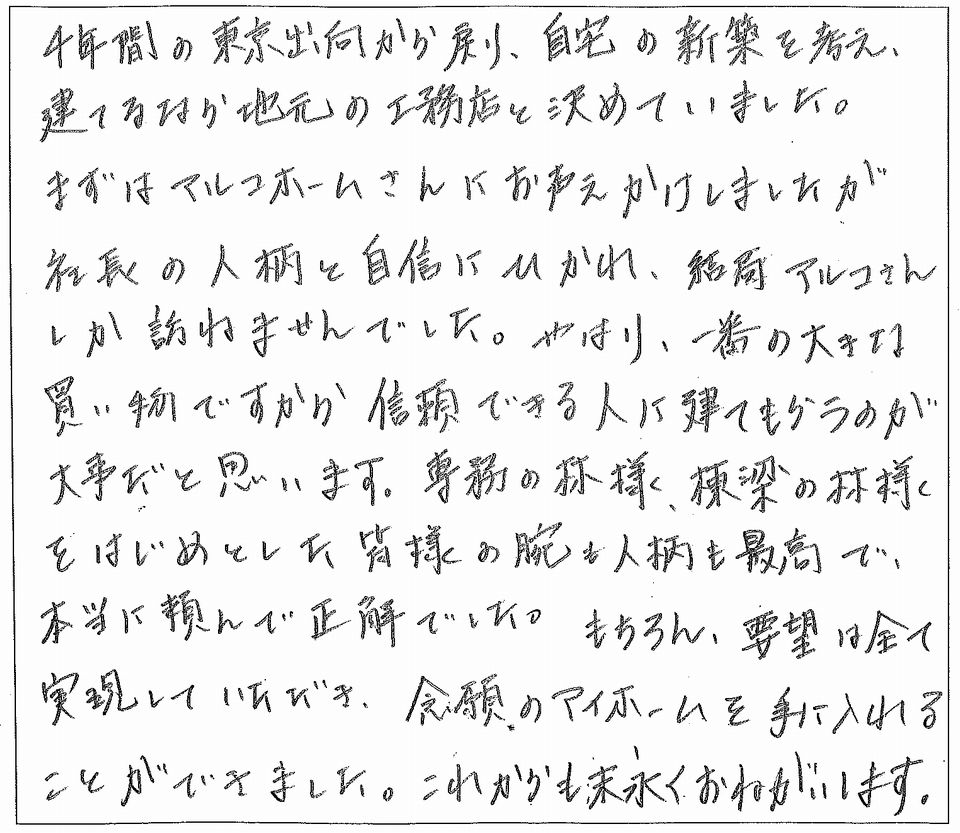 4年間の東京出向から戻り、自宅の新築を考え、
建てるなら地元の工務店と決めていました。
まずはアルコホームさんにお声えかけしましたが
社長の人柄と自信にひかれ、結局アルコさん
しか訪ねませんでした。やはり、一番の大きな
買い物ですから信頼できる人に建てもらうのが
大事だと思います。専務の林様、棟梁の林様
をはじめとした皆様の腕も人柄も最高で、
本当に頼んで正解でした。もちろん、要望は全て
実現していただき、念願のアイホームを手に入れる
ことができました。これからも末永くおねがいします。